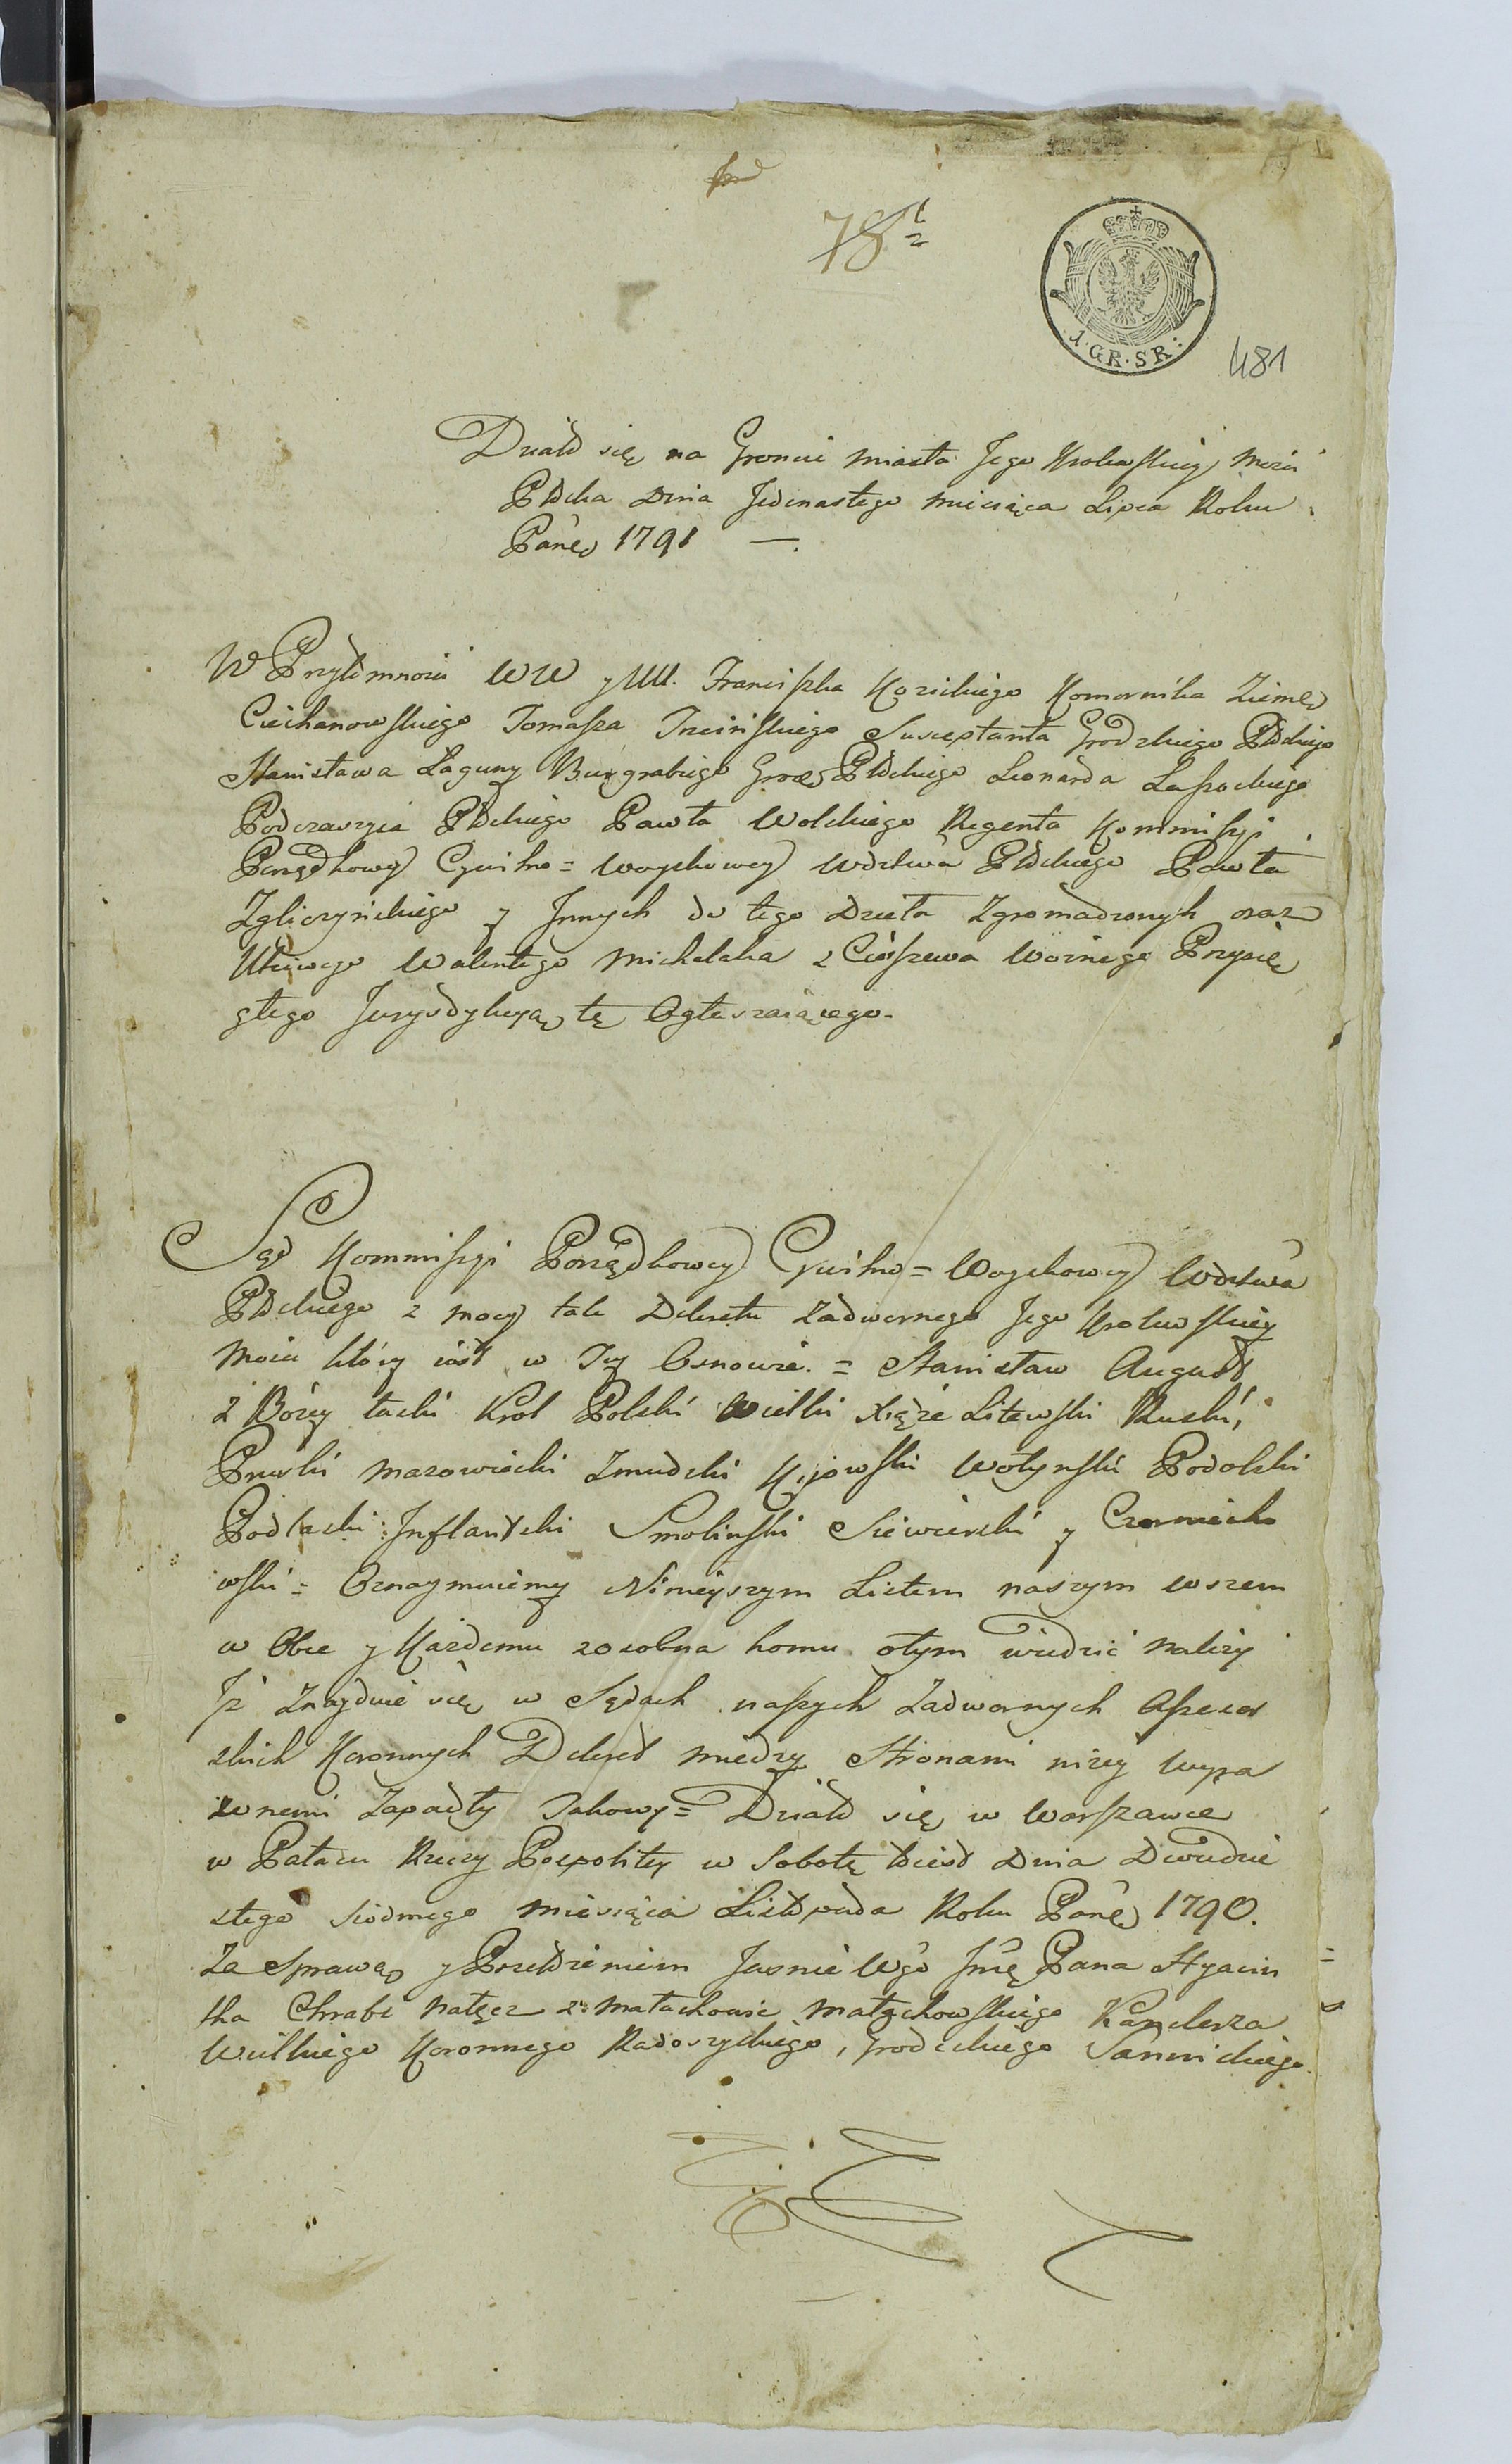 78
1·GR·SR:
481
Działo się na Gruncie miasta Jego Krolewskiey Mości
Płocka Dnia Jedenastego miesiąca Lipca Roku
Pane͠ 1791 —.
W Przytomności WW y UU. Franciszka Kozickiego Komornika Ziemg͠o
Ciechanowskiego Tomasza Trzcińskiego Susceptanta Grodzkiego Płockiego
Stanisława Łaguny Burgrabiego Płockiego Leonarda Łaszockiego
Podczaszyca Płockiego Pawła Wolskiego Regenta Kommiszyi
Porządkowey Cywilno = woyskowey Wdztwa Płockiego Pawła
Zgliczyńskiego y Jnnych do tego Dzieła Zgromadzonych oraz
Uczciwego Walentego Michalaka z Woznego Przysię
głego Jurysdykcyą tę Ogłaszaiącego.
Sąd Kommiszyi Porządkowey Cywilno = Woyskowey Wdztwa
Płockiego z mocy Dekretu Zadwornego Jego Krolewskiey
Mości który iest w Tey Osnowie. = Stanisław August
z Bożey łaski Krol Polski Wielki Xiąże Litewski Ruski,
Pruski Mazowiecki Zmudzki Kijowski Wołynski Podolski
Podlaski Jnflantski Smolinski Siewierski y Czerniecho
wski = Oznaymuiemy Ninieyszym Listem naszym wszem
w Obec y Każdemu zosobna komu otym wiedzieć należy
Jż Znayduie się w Sądach naszych Zadwornych Assesor
skich Koronnych Dekret miedzy Stronami niżey wyra
żonemi Zapadły Takowy = Działo się w Warszawie
w Pałacu Rzeczy Pospolitey w Sobotę to iest Dnia Dwudzie
stego siodmego miesiąca Listopada Roku Pane͠ 1790.
Za Sprawą y Jasnie Wgo Jmę Pana Hyacin
tha Chrabi Nałęcz z Małachowic Małachowskiego Kanclerza
Wielkiego Koronnego Radoszyckiego, Grodeckiego Sannickiego